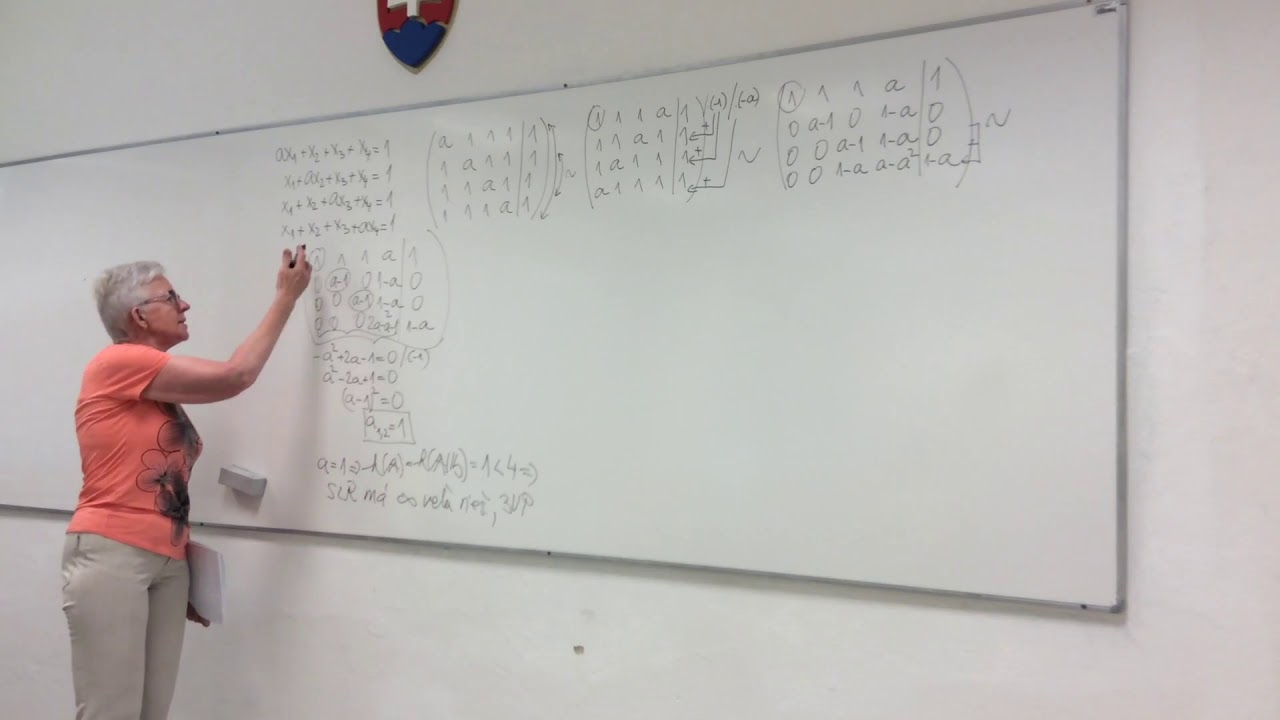 ax₁+x₂+x₃+x₄=1
x₁+ax₂+x₃+x₄=1
x₁+x₂+ax₃+x₄=1
x₁+x₂+x₃+ax₄=1
a 1 1 1 | 1
1 a 1 1 | 1
1 1 a 1 | 1
1 1 1 a | 1
~
1 1 1 a | 1 /(-1) /(-a)
1 1 a 1 | 1 +
1 a 1 1 | 1 +
a 1 1 1 | 1 +
~
1 1 1 a | 1
0 a-1 0 1-a | 0
0 0 a-1 1-a | 0
0 0 1-a a-a² | 1-a
~
1 1 1 a | 1
0 a-1 0 1-a 0
0 0 a-1 1-a 0
0 0 0 2a-a²-1 1-a
-a²+2a-1=0 /(-1)
a²-2a+1=0
(a-1)²=0
a₁,₂=1
a=1=>h(A)=h(A|b)=1<4=>
SLR má ∞ veľa rieš, 3VP